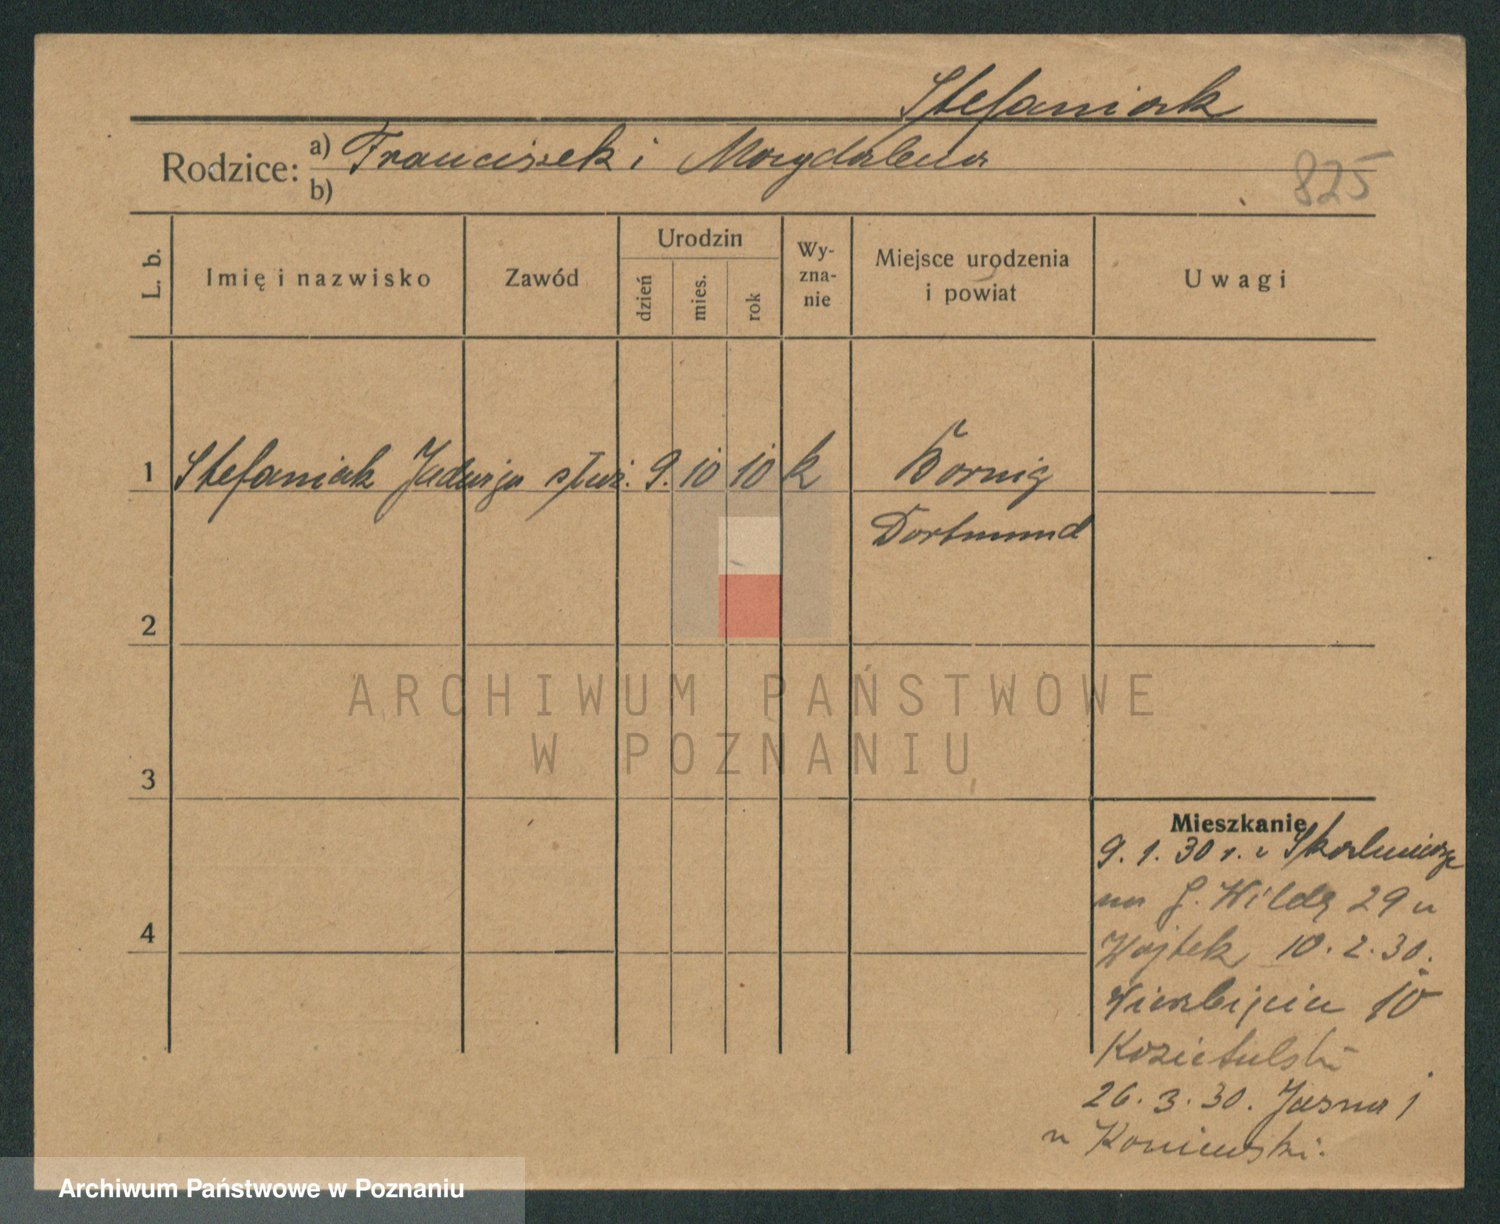 Stefaniak
Rodzice: a) Franciszek i Magdalena
b)
825
L. b. Imię i nazwisko Zawód Urodzin dzień mies. rok Wy-zna-nie Miejsce urodzenia i powiat Uwagi
1 Stefaniak Jadwiga służ. 9. 10 10 k Börnig
Dortmund
2
3
4
Mieszkanie
9. 1. 30 r. z
na G. Wildę 29 u
Wojtek 10. 2. 30.
Wierzbięcice 10
Kozietulski
26. 3. 30. Jasna 1
u Koniewski.
ARCHIWUM PAŃSTWOWE
W POZNANIU
Archiwum Państwowe w Poznaniu